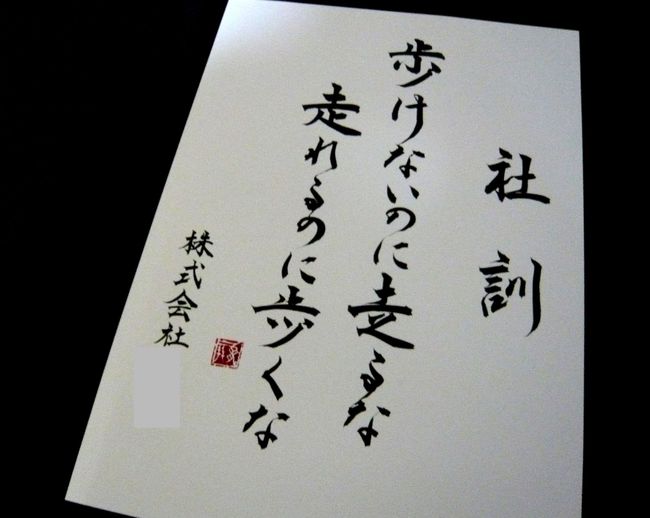 社訓
歩けないのに走るな
走れるのに歩くな
株式会社